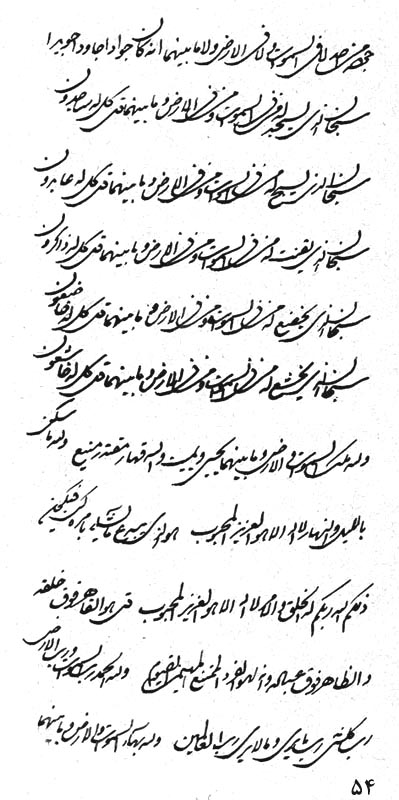 من احد لا فی السموات ولا فی الارض ولا ما بینهما انه کان جوادا جاودا جویدا
سبحان الذی یسجد له من فی السموات ومن فی الارض وما بینهما قل کل له ساجدون
سبحان الذی یسبح له من فی السموات ومن فی الارض وما بینهما قل کل له عابدون
سبحان الذی یقنت له من فی السموات ومن فی الارض وما بینهما قل کل له ذاکرون
سبحان الذی یخضع له من فی السموات ومن فی الارض وما بینهما قل کل له خاضعون
سبحان الذی یخشع له من فی السموات ومن فی الارض وما بینهما قل کل له خاشعون
وله ملک السموات والارض وما بینهما یحیی ویمیت وانه قهار مقتدر منیع وله ما سکن
باللیل والنهار لا اله الا هو العزیز المحبوب هو الذی یبدع ما یشاء بامره کن فیکون
ذلکم الله ربکم له الخلق والامر لا اله الا هو العزیز المحبوب قل هو القاهر فوق خلقه
والظاهر فوق عباده وانه لهو الفرد الممتنع المهیمن القیوم ولله الحمد رب السموات ورب الارض
رب کلشئ رب ما یری وما لا یری رب العالمین ولله بهاء السموات والارض وما بینهما
۵۴